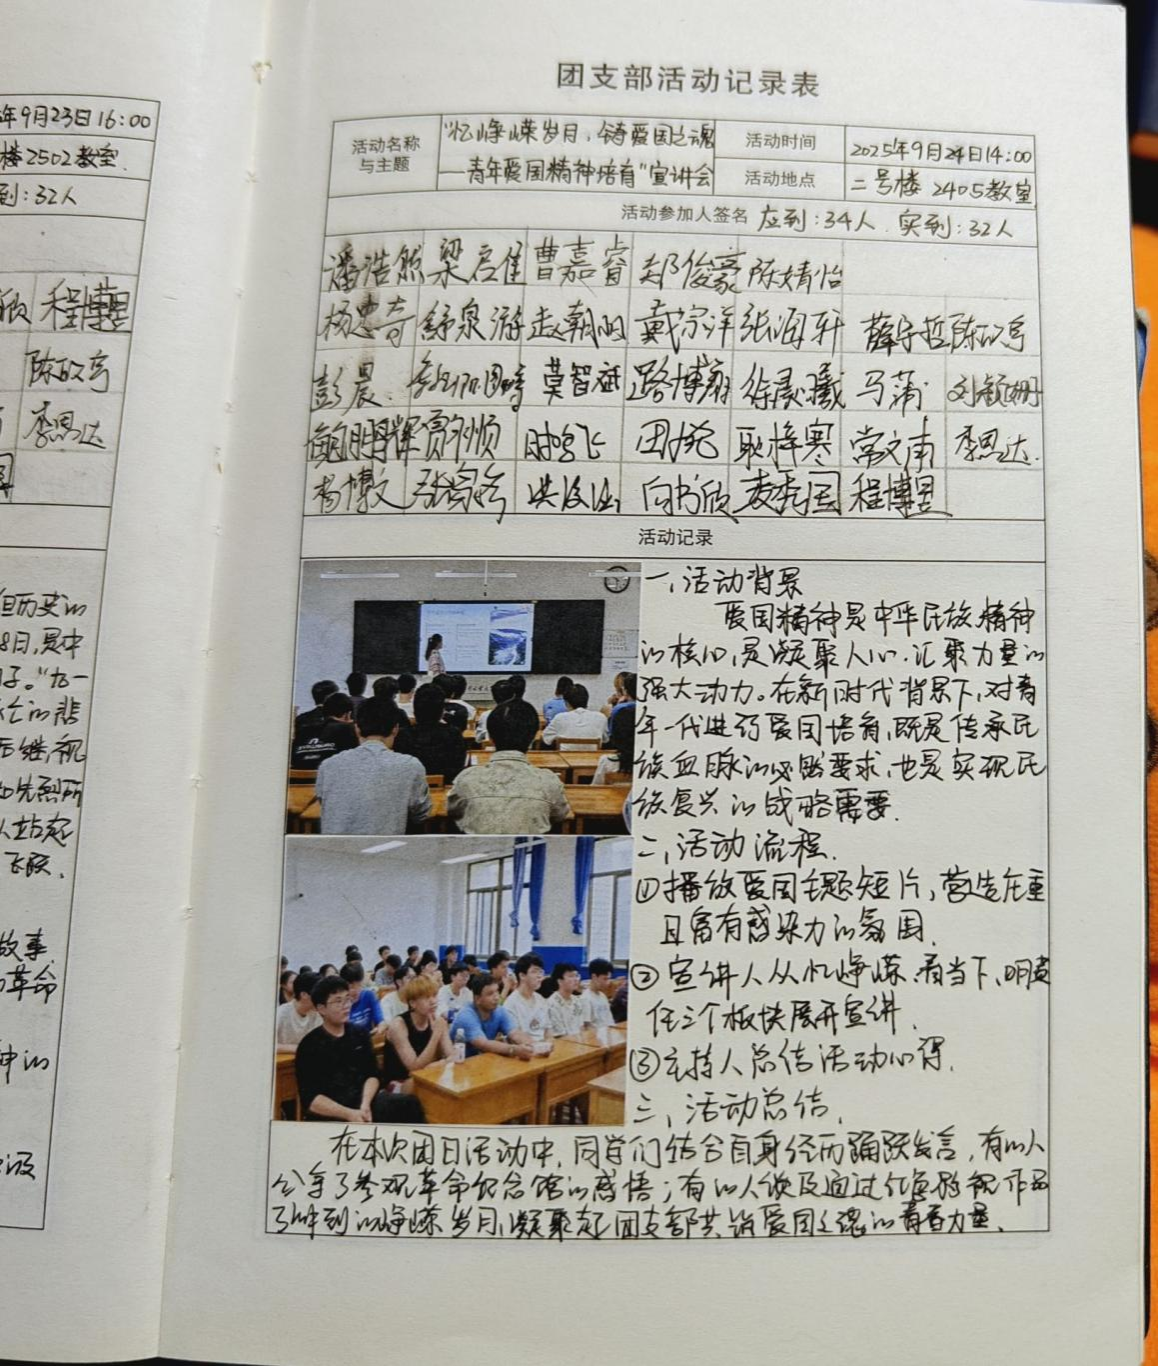 年9月23日16:00
楼2502教室.
到:32人
欣 程博昱
陈政亨
李思达
但历史的
8日,是中
子。"九一
亡的悲
后继,祝
如先烈所
人站起
飞跃.
故事
革命
神的
团支部活动记录表
活动名称与主题
"忆峥嵘岁月,铸爱国之魂
—青年爱国精神培育"宣讲会
活动时间
2025年9月24日14:00
活动地点
二号楼 2405教室
活动参加人签名 应到:34人. 实到:32人
潘浩然 梁启佳 曹嘉睿 郑俊豪 陈婧怡
杨忠奇 舒泉游 赵朝阳 戴宗洋 张润轩 薛守哲 陈政亨
彭晨 莫智斌 路博翔 徐晨曦 马蒲 刘颖姗
鲍鹏辉 贾尔顺 时鸣飞 田挽 耿梓寒 常文南 李思达.
杨博文 洪俊泓 向书欣 麦秀国 程博昱
活动记录
一、活动背景
爱国精神是中华民族精神
的核心,是凝聚人心、汇聚力量的
强大动力。在新时代背景下,对青
年一代进行爱国培育,既是传承民
族血脉的必然要求,也是实现民
族复兴的战略需要.
二、活动流程.
①播放爱国主题短片,营造庄重
且富有感染力的氛围.
②宣讲人从忆峥嵘、看当下、明责
任三个板块展开宣讲.
③主持人总结活动心得.
三、活动总结.
在本次团日活动中,同学们结合自身经历踊跃发言,有的人
分享了参观革命纪念馆的感悟;有的人谈及通过红色影视作品
了解到的峥嵘岁月,凝聚起团支部共筑爱国之魂的青春力量.